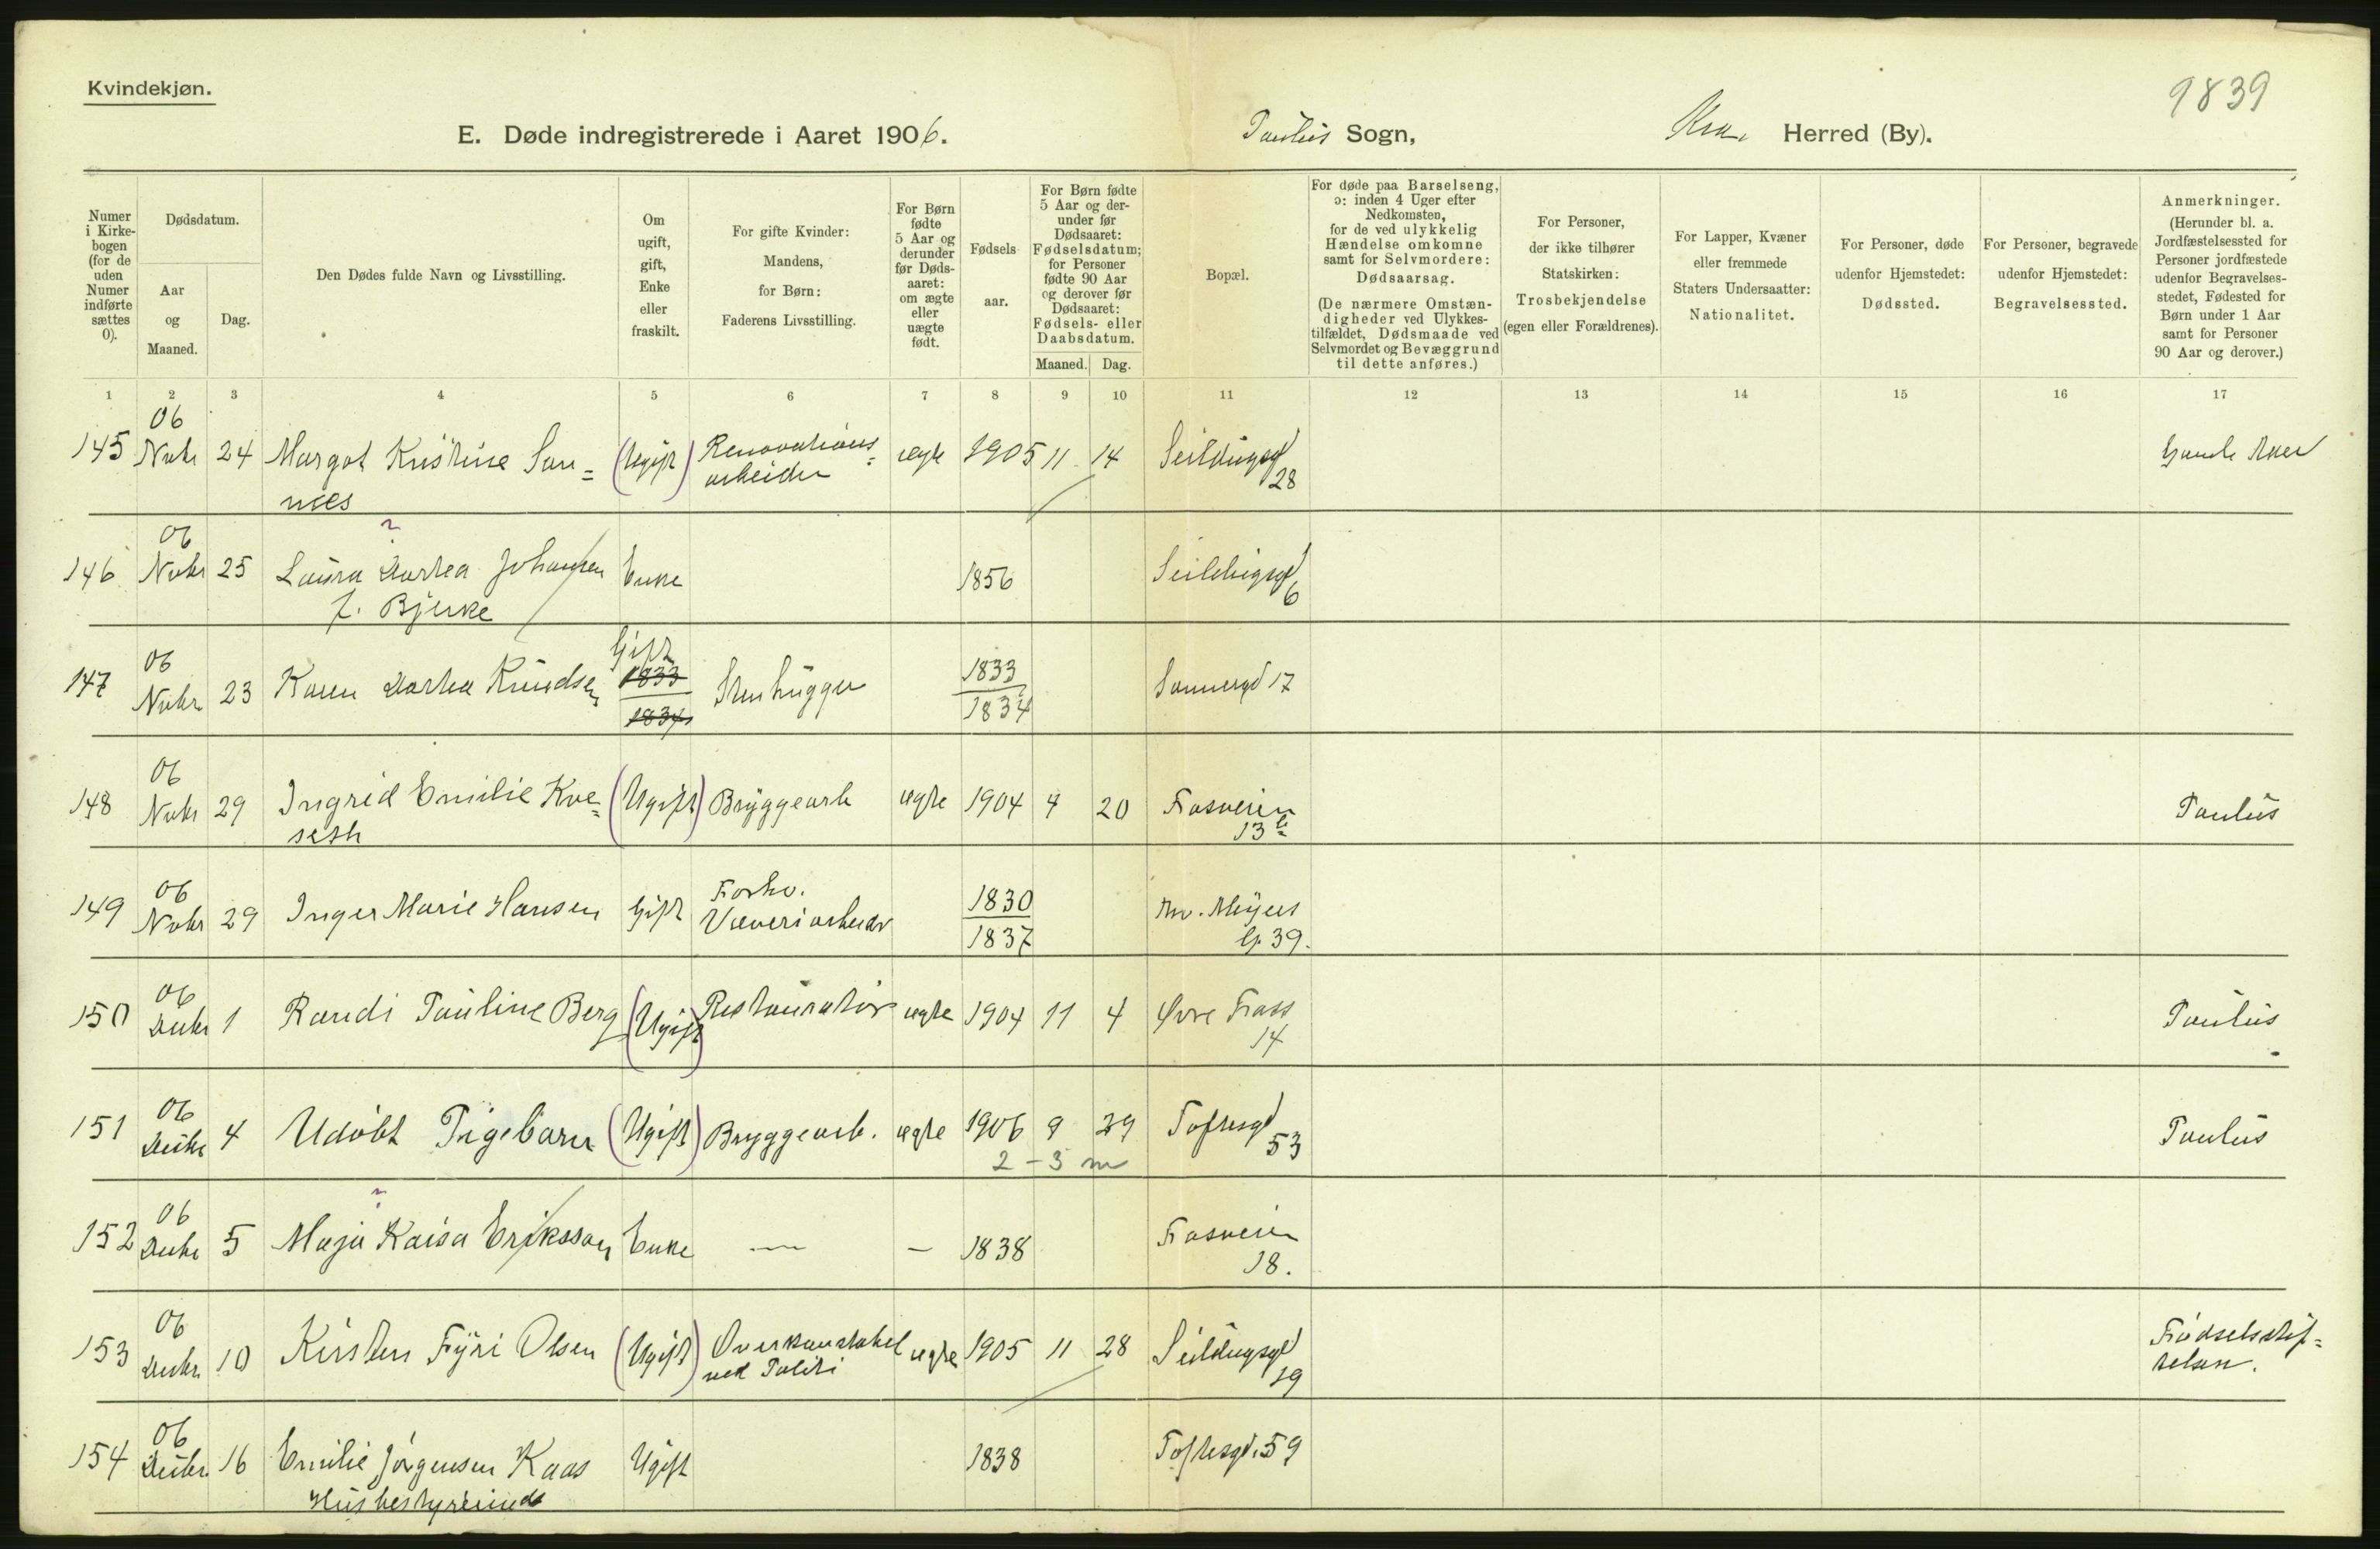 Kvindekjøn.
9839
E. Døde indregistrerede i Aaret 1906. Paulus Sogn, Kra. Herred (By).
Numer i Kirke-bogen (for de uden Numer indførte sættes 0).
Dødsdatum.
Aar og Maaned.
Dag.
Den Dødes fulde Navn og Livsstilling.
Om ugift, gift, Enke eller fraskilt.
For gifte Kvinder: Mandens, for Børn: Faderens Livsstilling.
For Børn fødte 5 Aar og derunder før Døds-aaret: om ægte eller uægte født.
Fødsels aar.
For Børn fødte 5 Aar og der-under før Dødsaaret: Fødselsdatum; for Personer fødte 90 Aar og derover før Dødsaaret: Fødsels- eller Daabsdatum.
Maaned. Dag.
Bopæl.
For døde paa Barselseng, ɔ: inden 4 Uger efter Nedkomsten, for de ved ulykkelig Hændelse omkomne samt for Selvmordere: Dødsaarsag.
(De nærmere Omstæn-digheder ved Ulykkes-tilfældet, Dødsmaade ved Selvmordet og Bevæggrund til dette anføres.)
For Personer, der ikke tilhører Statskirken: Trosbekjendelse (egen eller Forældrenes).
For Lapper, Kvæner eller fremmede Staters Undersaatter: Nationalitet.
For Personer, døde udenfor Hjemstedet: Dødssted.
For Personer, begravede udenfor Hjemstedet: Begravelsessted.
Anmerkninger.
(Herunder bl. a. Jordfæstelsessted for Personer jordfæstede udenfor Begravelses-stedet, Fødested for Børn under 1 Aar samt for Personer 90 Aar og derover.)
1 2 3 4 5 6 7 8 9 10 11 12 13 14 15 16 17
06
145 Nvbr 24 Margot Kristine San= (Ugift) Renovations= ægte 1905 11 14 Seildugsgd Gamle Aker
næs arbeider 28
06 ?
146 Nvbr 25 Laura Dortea Johansen Enke 1856 Seildugsgd
f. Bjerke 6
06 Gift
147 Nvbr 23 Karen Dortea Knudsen 1833 Stenhugger 1833 Sannergd 17
1834 1834
06
148 Nvbr 29 Ingrid Emilie Kve= (Ugift) Bryggearb ægte 1904 9 20 Fosveien Paulus
seth 13
06 Forhv.
149 Nvbr 29 Inger Marie Hansen Gift Væveriarbeider 1830 Thv. Meyers
1837 G 39.
06
150 Decbr 1 Randi Pauline Berg (Ugift) Restauratør ægte 1904 11 4 Øvre Foss Paulus
14
06
151 Decbr 4 Udøbt Pigebarn (Ugift) Bryggearb. ægte 1906 9 29 Toftesgd Paulus
2 - 3 m 53
06 ?
152 Decbr 5 Maja Kaisa Eriksson Enke — – 1838 Fosveien
18.
06
153 Decbr 10 Kirsten Fyri Olsen (Ugift) Overkonstabel ægte 1905 11 28 Seildugsgd Fødselsstif=
ved Politi 19 telsen.
06
154 Decbr. 16 Emilie Jørgensen Kaas Ugift 1838 Toftesgd. 59
Husbestyrerinde